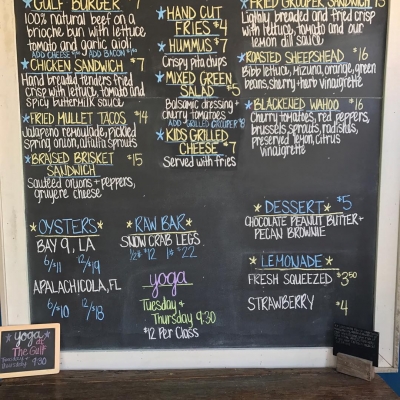 GULF BURGER 7
100% natural beef on a
brioche bun with lettuce
tomato and garlic aioli
ADD CHEESE ADD BACON
CHICKEN SANDWICH 7
Hand breaded tenders fried
crisp with lettuce, tomato and
spicy buttermilk sauce
FRIED MULLET TACOS $14
Jalapeno remoulade, pickled
spring onion, alfalfa sprouts
BRAISED BRISKET $15
SANDWICH
Sauteed onions + peppers,
gruyere cheese
HAND CUT
FRIES $4
HUMMUS $7
Crispy pita chips
MIXED GREEN
SALAD $5
Balsamic dressing +
cherry tomatoes
ADD GRILLED GROUPER $8
KIDS GRILLED
CHEESE $7
Served with fries
FRIED GROUPER SANDWICH 15
Lightly breaded and fried crisp
with lettuce, tomato and our
lemon dill sauce
ROASTED SHEEPSHEAD $16
Bibb lettuce, mizuna, orange, green
beans, sherry-herb vinaigrette
BLACKENED WAHOO $16
Cherry tomatoes, red peppers,
brussels sprouts, radishes,
preserved lemon, citrus
vinaigrette
OYSTERS
BAY 9, LA
6/$11 12/$19
APALACHICOLA, FL
6/$10 12/$18
RAW BAR
SNOW CRAB LEGS
1/2 # $12 1# $22
yoga
Tuesday +
Thursday 9:30
$12 Per Class
DESSERT $5
CHOCOLATE PEANUT BUTTER +
PECAN BROWNIE
LEMONADE
FRESH SQUEEZED $3.50
STRAWBERRY $4
yoga
at
The Gulf
Tuesday +
Thursday 9:30